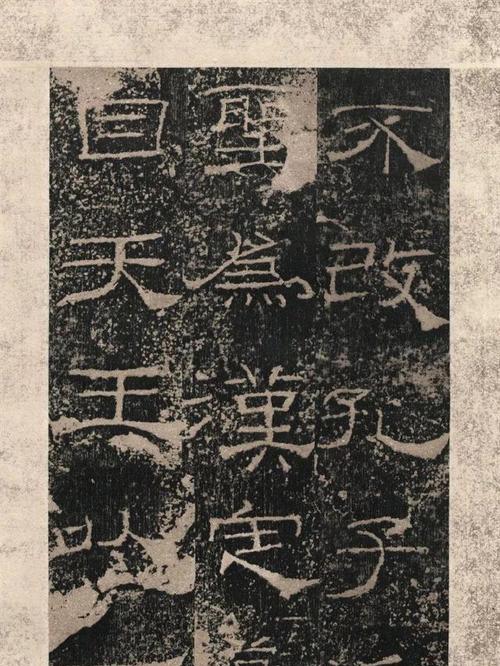 不改孔子
聖為漢定
自天王以